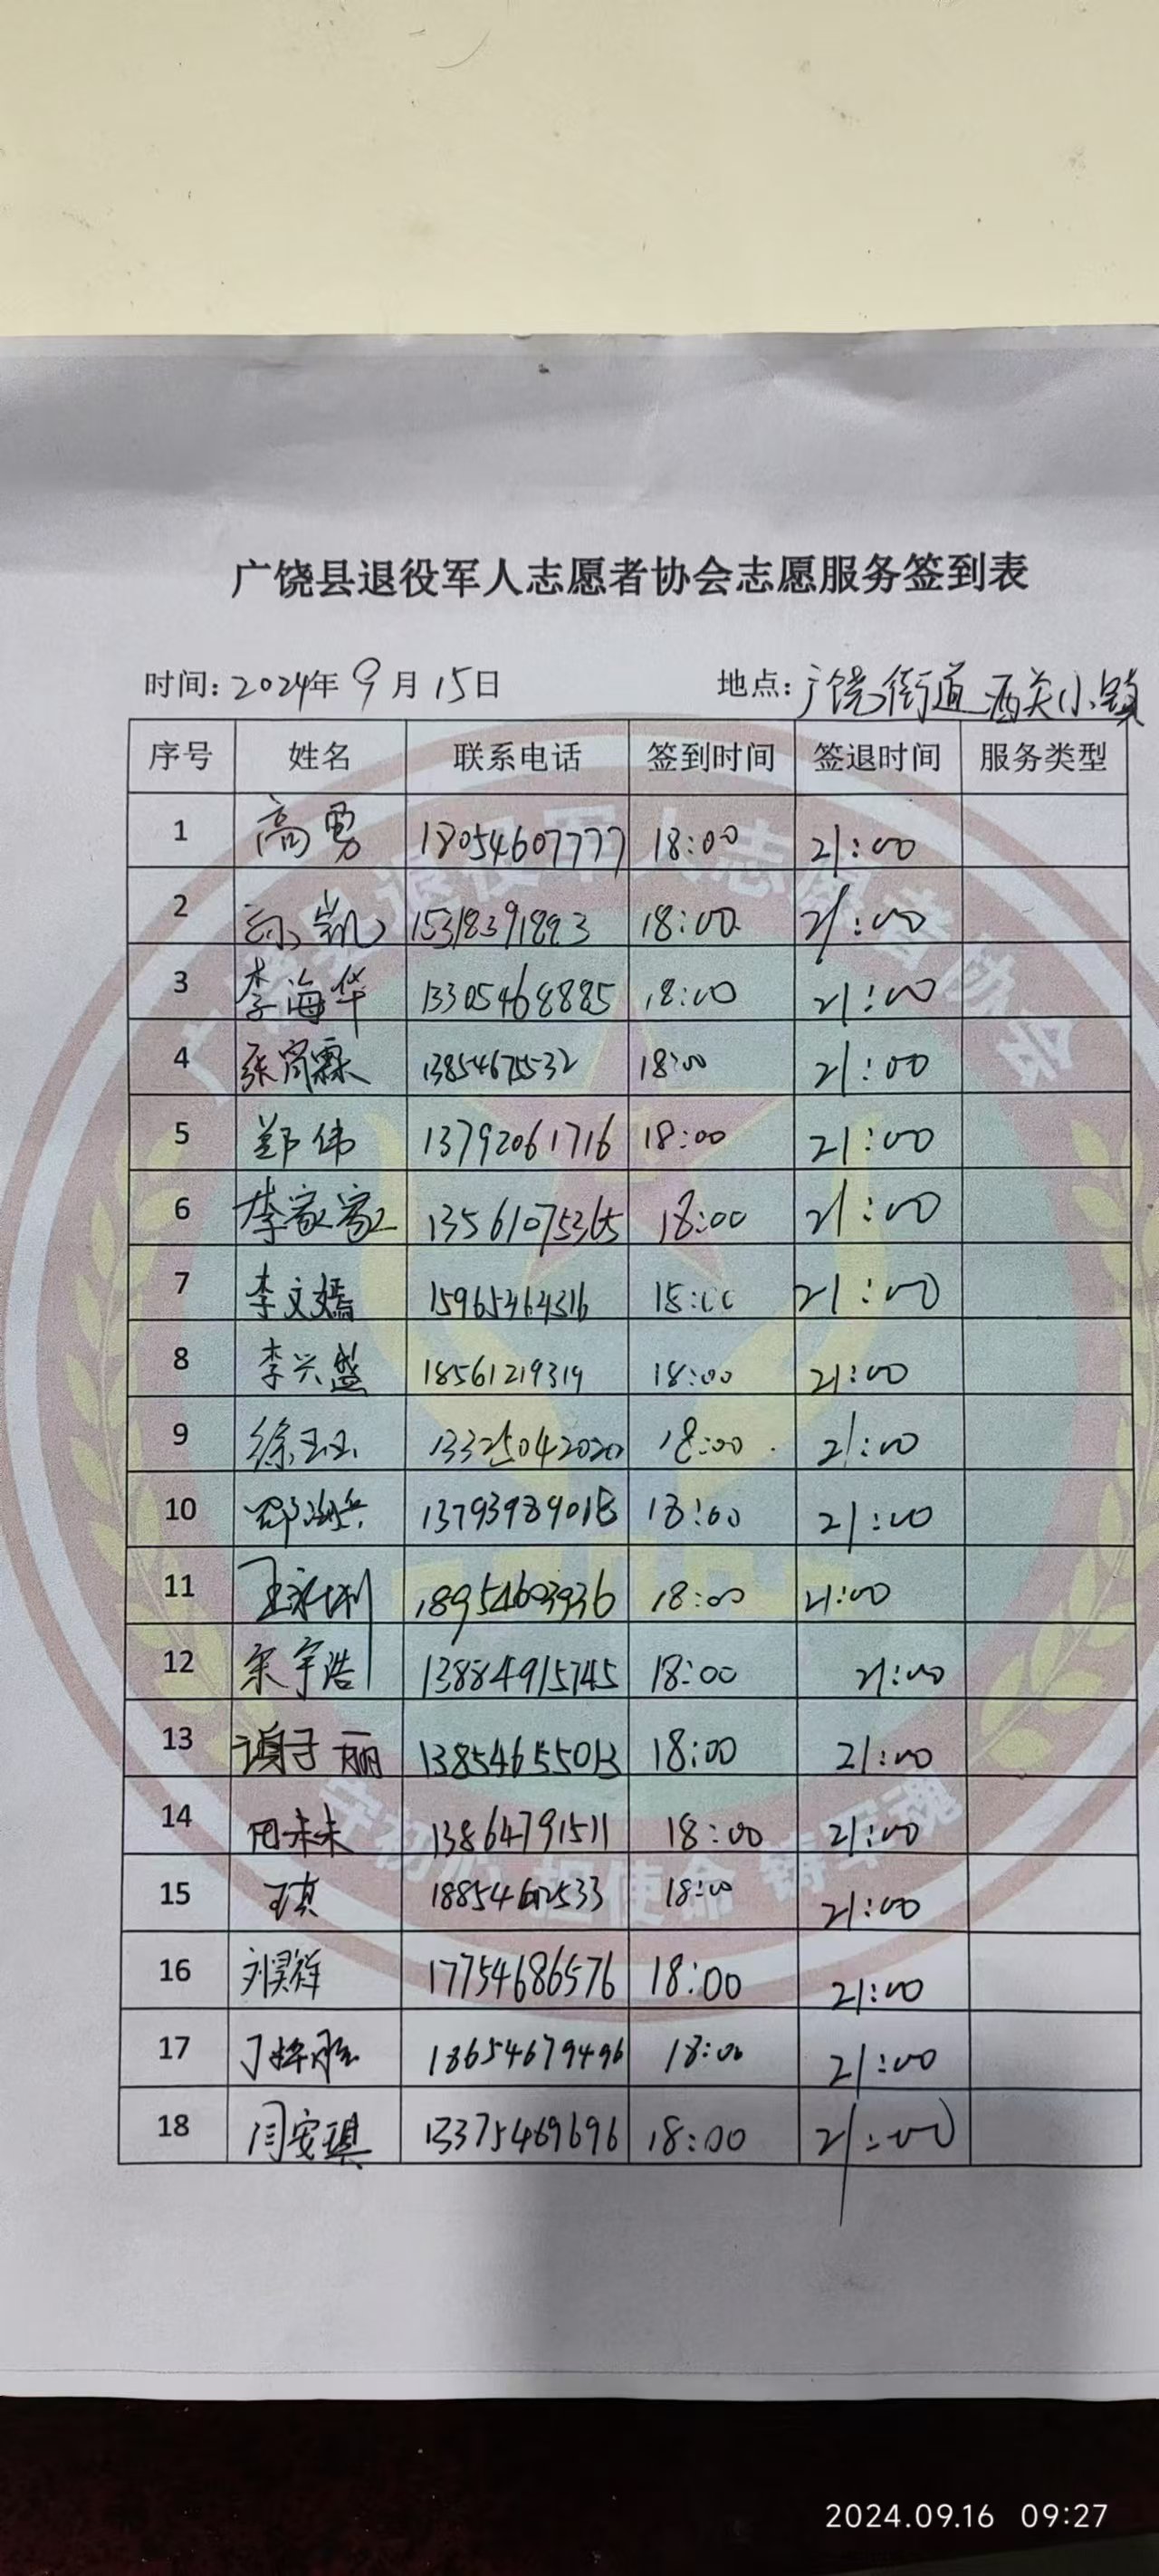 广饶县退役军人志愿者协会志愿服务签到表
时间: 2024年 9月 15日 地点: 广饶街道西关小镇
序号 姓名 联系电话 签到时间 签退时间 服务类型
1 高勇 18054607777 18:00 21:00
2 孙凯 15318391893 18:00 21:00
3 李海华 13305468885 18:00 21:00
4 张 18:00 21:00
5 郑伟 13792061716 18:00 21:00
6 李家家 13561075365 18:00 21:00
7 李文嫣 15965464316 18:00 21:00
8 李兴盛 18561219319 18:00 21:00
9 徐玉玉 13325042020 18:00 21:00
10 邵海兵 13793989018 18:00 21:00
11 王永利 18954603936 18:00 21:00
12 宋宇浩 13884915745 18:00 21:00
13 子丽 13854655013 18:00 21:00
14 未未 13864791511 18:00 21:00
15 18:00 21:00
16 刘昊祥 17754686576 18:00 21:00
17 丁 18654679496 18:00 21:00
18 闫安琪 13375469696 18:00 21:00
广饶县退役军人志愿者协会
守初心 担使命 铸军魂
2024.09.16 09:27